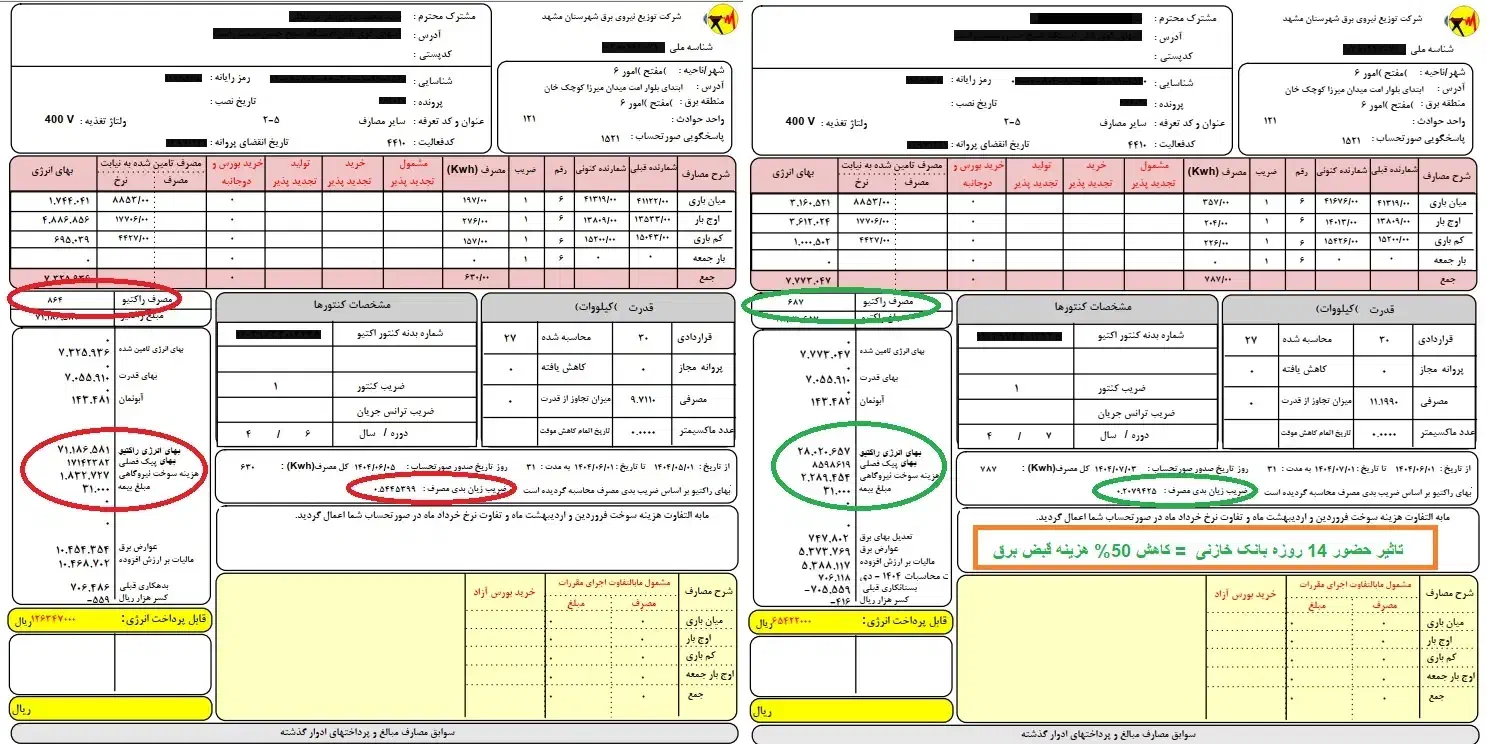 شرکت توزیع نیروی برق شهرستان مشهد
شناسه ملی
شهر/ناحیه : )مفتح )امور ۶
آدرس : ابتدای بلوار امت میدان میرزا کوچک خان
منطقه برق : )مفتح )امور ۶
واحد حوادث : ۱۲۱
پاسخگویی صورتحساب : ۱۵۲۱
مشترک محترم :
آدرس :
کدپستی :
شناسایی : رمز رایانه :
پرونده : تاریخ نصب :
عنوان و کد تعرفه : سایر مصارف ۲-۵ ولتاژ تغذیه : 400 V
کدفعالیت : ۴۴۱۰ تاریخ انقضای پروانه :
شرح مصارف شمارنده قبلی شمارنده کنونی رقم ضریب مصرف (Kwh) مشمول تجدید پذیر خرید تجدید پذیر تولید تجدید پذیر خرید بورس و دوجانبه مصرف تامین شده به نیابت مصرف نرخ بهای انرژی
میان باری ۴۱۳۱۹/۰۰ ۴۱۶۷۶/۰۰ ۶ ۱ ۳۵۷/۰۰ ۰ ۸۸۵۳/۰۰ ۳.۱۶۰.۵۲۱
اوج بار ۱۳۸۰۹/۰۰ ۱۴۰۱۳/۰۰ ۶ ۱ ۲۰۴/۰۰ ۰ ۱۷۷۰۶/۰۰ ۳.۶۱۲.۰۲۴
کم باری ۱۵۲۰۰/۰۰ ۱۵۴۲۶/۰۰ ۶ ۱ ۲۲۶/۰۰ ۰ ۴۴۲۷/۰۰ ۱.۰۰۰.۵۰۲
بار جمعه ۰ ۰ ۶ ۱ ۰ ۰ ۰
جمع ۷۸۷/۰۰ ۰ ۷.۷۷۳.۰۴۷
مصرف راکتیو ۶۸۷
قدرت )کیلووات(
قراردادی ۳۰ محاسبه شده ۲۷
پروانه مجاز ۰ کاهش یافته ۰
مصرفی ۱۱.۱۹۹۰ میزان تجاوز از قدرت ۰
عدد ماکسیمتر ۰.۰۰۰۰ تاریخ اتمام کاهش موقت
مشخصات کنتورها
شماره بدنه کنتور اکتیو
ضریب کنتور ۱
ضریب ترانس جریان
دوره / سال ۷ / ۴
بهای انرژی تامین شده ۷.۷۷۳.۰۴۷
بهای قدرت ۷.۰۵۵.۹۱۰
آبونمان ۱۴۳.۴۸۲
بهای انرژی راکتیو ۲۸.۰۲۰.۶۵۷
بهای پیک فصلی ۸۵۹۸۶۱۹
هزینه سوخت نیروگاهی ۲.۲۸۹.۴۵۴
مبلغ بیمه ۳۱.۰۰۰
تعدیل بهای برق ۷۴۷.۸۰۲
عوارض برق ۵.۳۷۳.۷۶۹
مالیات بر ارزش افزوده ۵.۳۸۸.۱۱۷
ت محاسبات ۱۴۰۴ - دی ۷۰۶.۱۱۸
بستانکاری قبلی -۷۰۵.۵۵۹
کسر هزار ریال -۴۱۶
قابل پرداخت انرژی: ۶۵۴۲۲۰۰۰ریال
ریال
از تاریخ : ۱۴۰۴/۰۶/۰۱ تا تاریخ : ۱۴۰۴/۰۷/۰۱ به مدت : ۳۱ روز تاریخ صدور صورتحساب : ۱۴۰۴/۰۷/۰۳ کل مصرف(Kwh) : ۷۸۷
بهای راکتیو بر اساس ضریب بدی مصرف محاسبه گردیده است ضریب زیان بدی مصرف : ۰.۲۰۷۹۴۲۵
مابه التفاوت هزینه سوخت فروردین و اردیبهشت ماه و تفاوت نرخ خرداد ماه در صورتحساب شما اعمال گردید.
تاثیر حضور 14 روزه بانک خازنی = کاهش 50% هزینه قبض برق
شرح مصارف مشمول مابالتفاوت اجرای مقررات مصرف مبلغ خرید بورس آزاد
میان باری ۰ ۰
اوج بار ۰ ۰
کم باری ۰ ۰
اوج بار جمعه ۰ ۰
جمع ۰ ۰
سوابق مصارف مبالغ و پرداختهای ادوار گذشته
شرکت توزیع نیروی برق شهرستان مشهد
شناسه ملی
شهر/ناحیه : )مفتح )امور ۶
آدرس : ابتدای بلوار امت میدان میرزا کوچک خان
منطقه برق : )مفتح )امور ۶
واحد حوادث : ۱۲۱
پاسخگویی صورتحساب : ۱۵۲۱
مشترک محترم :
آدرس :
کدپستی :
شناسایی : رمز رایانه :
پرونده : تاریخ نصب :
عنوان و کد تعرفه : سایر مصارف ۲-۵ ولتاژ تغذیه : 400 V
کدفعالیت : ۴۴۱۰ تاریخ انقضای پروانه :
شرح مصارف شمارنده قبلی شمارنده کنونی رقم ضریب مصرف (Kwh) مشمول تجدید پذیر خرید تجدید پذیر تولید تجدید پذیر خرید بورس و دوجانبه مصرف تامین شده به نیابت مصرف نرخ بهای انرژی
میان باری ۴۱۱۲۲/۰۰ ۴۱۳۱۹/۰۰ ۶ ۱ ۱۹۷/۰۰ ۰ ۸۸۵۳/۰۰ ۱.۷۴۴.۰۴۱
اوج بار ۱۳۵۳۳/۰۰ ۱۳۸۰۹/۰۰ ۶ ۱ ۲۷۶/۰۰ ۰ ۱۷۷۰۶/۰۰ ۴.۸۸۶.۸۵۶
کم باری ۱۵۰۴۳/۰۰ ۱۵۲۰۰/۰۰ ۶ ۱ ۱۵۷/۰۰ ۰ ۴۴۲۷/۰۰ ۶۹۵.۰۳۹
بار جمعه ۰ ۰ ۶ ۱ ۰ ۰ ۰
جمع ۶۳۰/۰۰ ۰ ۷.۳۲۵.۹۳۶
مصرف راکتیو ۸۶۴
مبلغ راکتیو ۷۱.۱۸۶.۵۸۱
قدرت )کیلووات(
قراردادی ۳۰ محاسبه شده ۲۷
پروانه مجاز ۰ کاهش یافته ۰
مصرفی ۹.۷۱۱۰ میزان تجاوز از قدرت ۰
عدد ماکسیمتر ۰.۰۰۰۰ تاریخ اتمام کاهش موقت
مشخصات کنتورها
شماره بدنه کنتور اکتیو
ضریب کنتور ۱
ضریب ترانس جریان
دوره / سال ۶ / ۴
بهای انرژی تامین شده ۷.۳۲۵.۹۳۶
بهای قدرت ۷.۰۵۵.۹۱۰
آبونمان ۱۴۳.۴۸۱
بهای انرژی راکتیو ۷۱.۱۸۶.۵۸۱
بهای پیک فصلی ۱۷۱۴۲۳۸۲
هزینه سوخت نیروگاهی ۱.۸۳۲.۷۲۷
مبلغ بیمه ۳۱.۰۰۰
عوارض برق ۱۰.۴۵۴.۳۵۴
مالیات بر ارزش افزوده ۱۰.۴۶۸.۷۰۲
بدهکاری قبلی ۷۰۶.۴۸۶
کسر هزار ریال -۵۵۹
قابل پرداخت انرژی: ۱۲۶۳۴۷۰۰۰ریال
ریال
از تاریخ : ۱۴۰۴/۰۵/۰۱ تا تاریخ : ۱۴۰۴/۰۶/۰۱ به مدت : ۳۱ روز تاریخ صدور صورتحساب : ۱۴۰۴/۰۶/۰۵ کل مصرف(Kwh) : ۶۳۰
بهای راکتیو بر اساس ضریب بدی مصرف محاسبه گردیده است ضریب زیان بدی مصرف : ۰.۵۴۴۵۳۹۹
مابه التفاوت هزینه سوخت فروردین و اردیبهشت ماه و تفاوت نرخ خرداد ماه در صورتحساب شما اعمال گردید.
شرح مصارف مشمول مابالتفاوت اجرای مقررات مصرف مبلغ خرید بورس آزاد
میان باری ۰ ۰
اوج بار ۰ ۰
کم باری ۰ ۰
اوج بار جمعه ۰ ۰
جمع ۰ ۰
سوابق مصارف مبالغ و پرداختهای ادوار گذشته